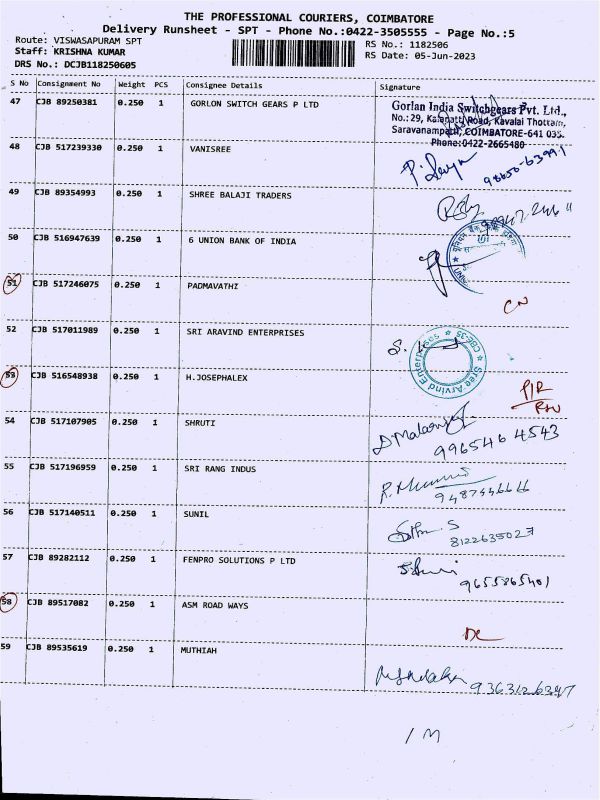 THE PROFESSIONAL COURIERS, COIMBATORE
Delivery Runsheet - SPT - Phone No.:0422-3505555 - Page No.:5
Route: VISWASAPURAM SPT RS No.: 1182506
Staff: KRISHNA KUMAR RS Date: 05-Jun-2023
DRS No.: DCJB118250605
S No Consignment No Weight PCS Consignee Details Signature
47 CJB 89250381 0.250 1 GORLON SWITCH GEARS P LTD
Gorlan India Switchgears Pvt. Ltd.,
No.: 29, Kalapatti Road, Kavalai Thottam,
Saravanampatti, COIMBATORE-641 035.
Phone:0422-2665480
48 CJB 517239330 0.250 1 VANISREE
49 CJB 89354993 0.250 1 SHREE BALAJI TRADERS
50 CJB 516947639 0.250 1 6 UNION BANK OF INDIA
51 CJB 517246075 0.250 1 PADMAVATHI
CN
52 CJB 517011989 0.250 1 SRI ARAVIND ENTERPRISES
Sree Arvind Enterprises CBE-35
53 CJB 516548938 0.250 1 H.JOSEPHALEX
54 CJB 517107905 0.250 1 SHRUTI
9965464543
55 CJB 517196959 0.250 1 SRI RANG INDUS
56 CJB 517140511 0.250 1 SUNIL
8122635027
57 CJB 89282112 0.250 1 FENPRO SOLUTIONS P LTD
9655865401
58 CJB 89517082 0.250 1 ASM ROAD WAYS
DC
59 CJB 89535619 0.250 1 MUTHIAH